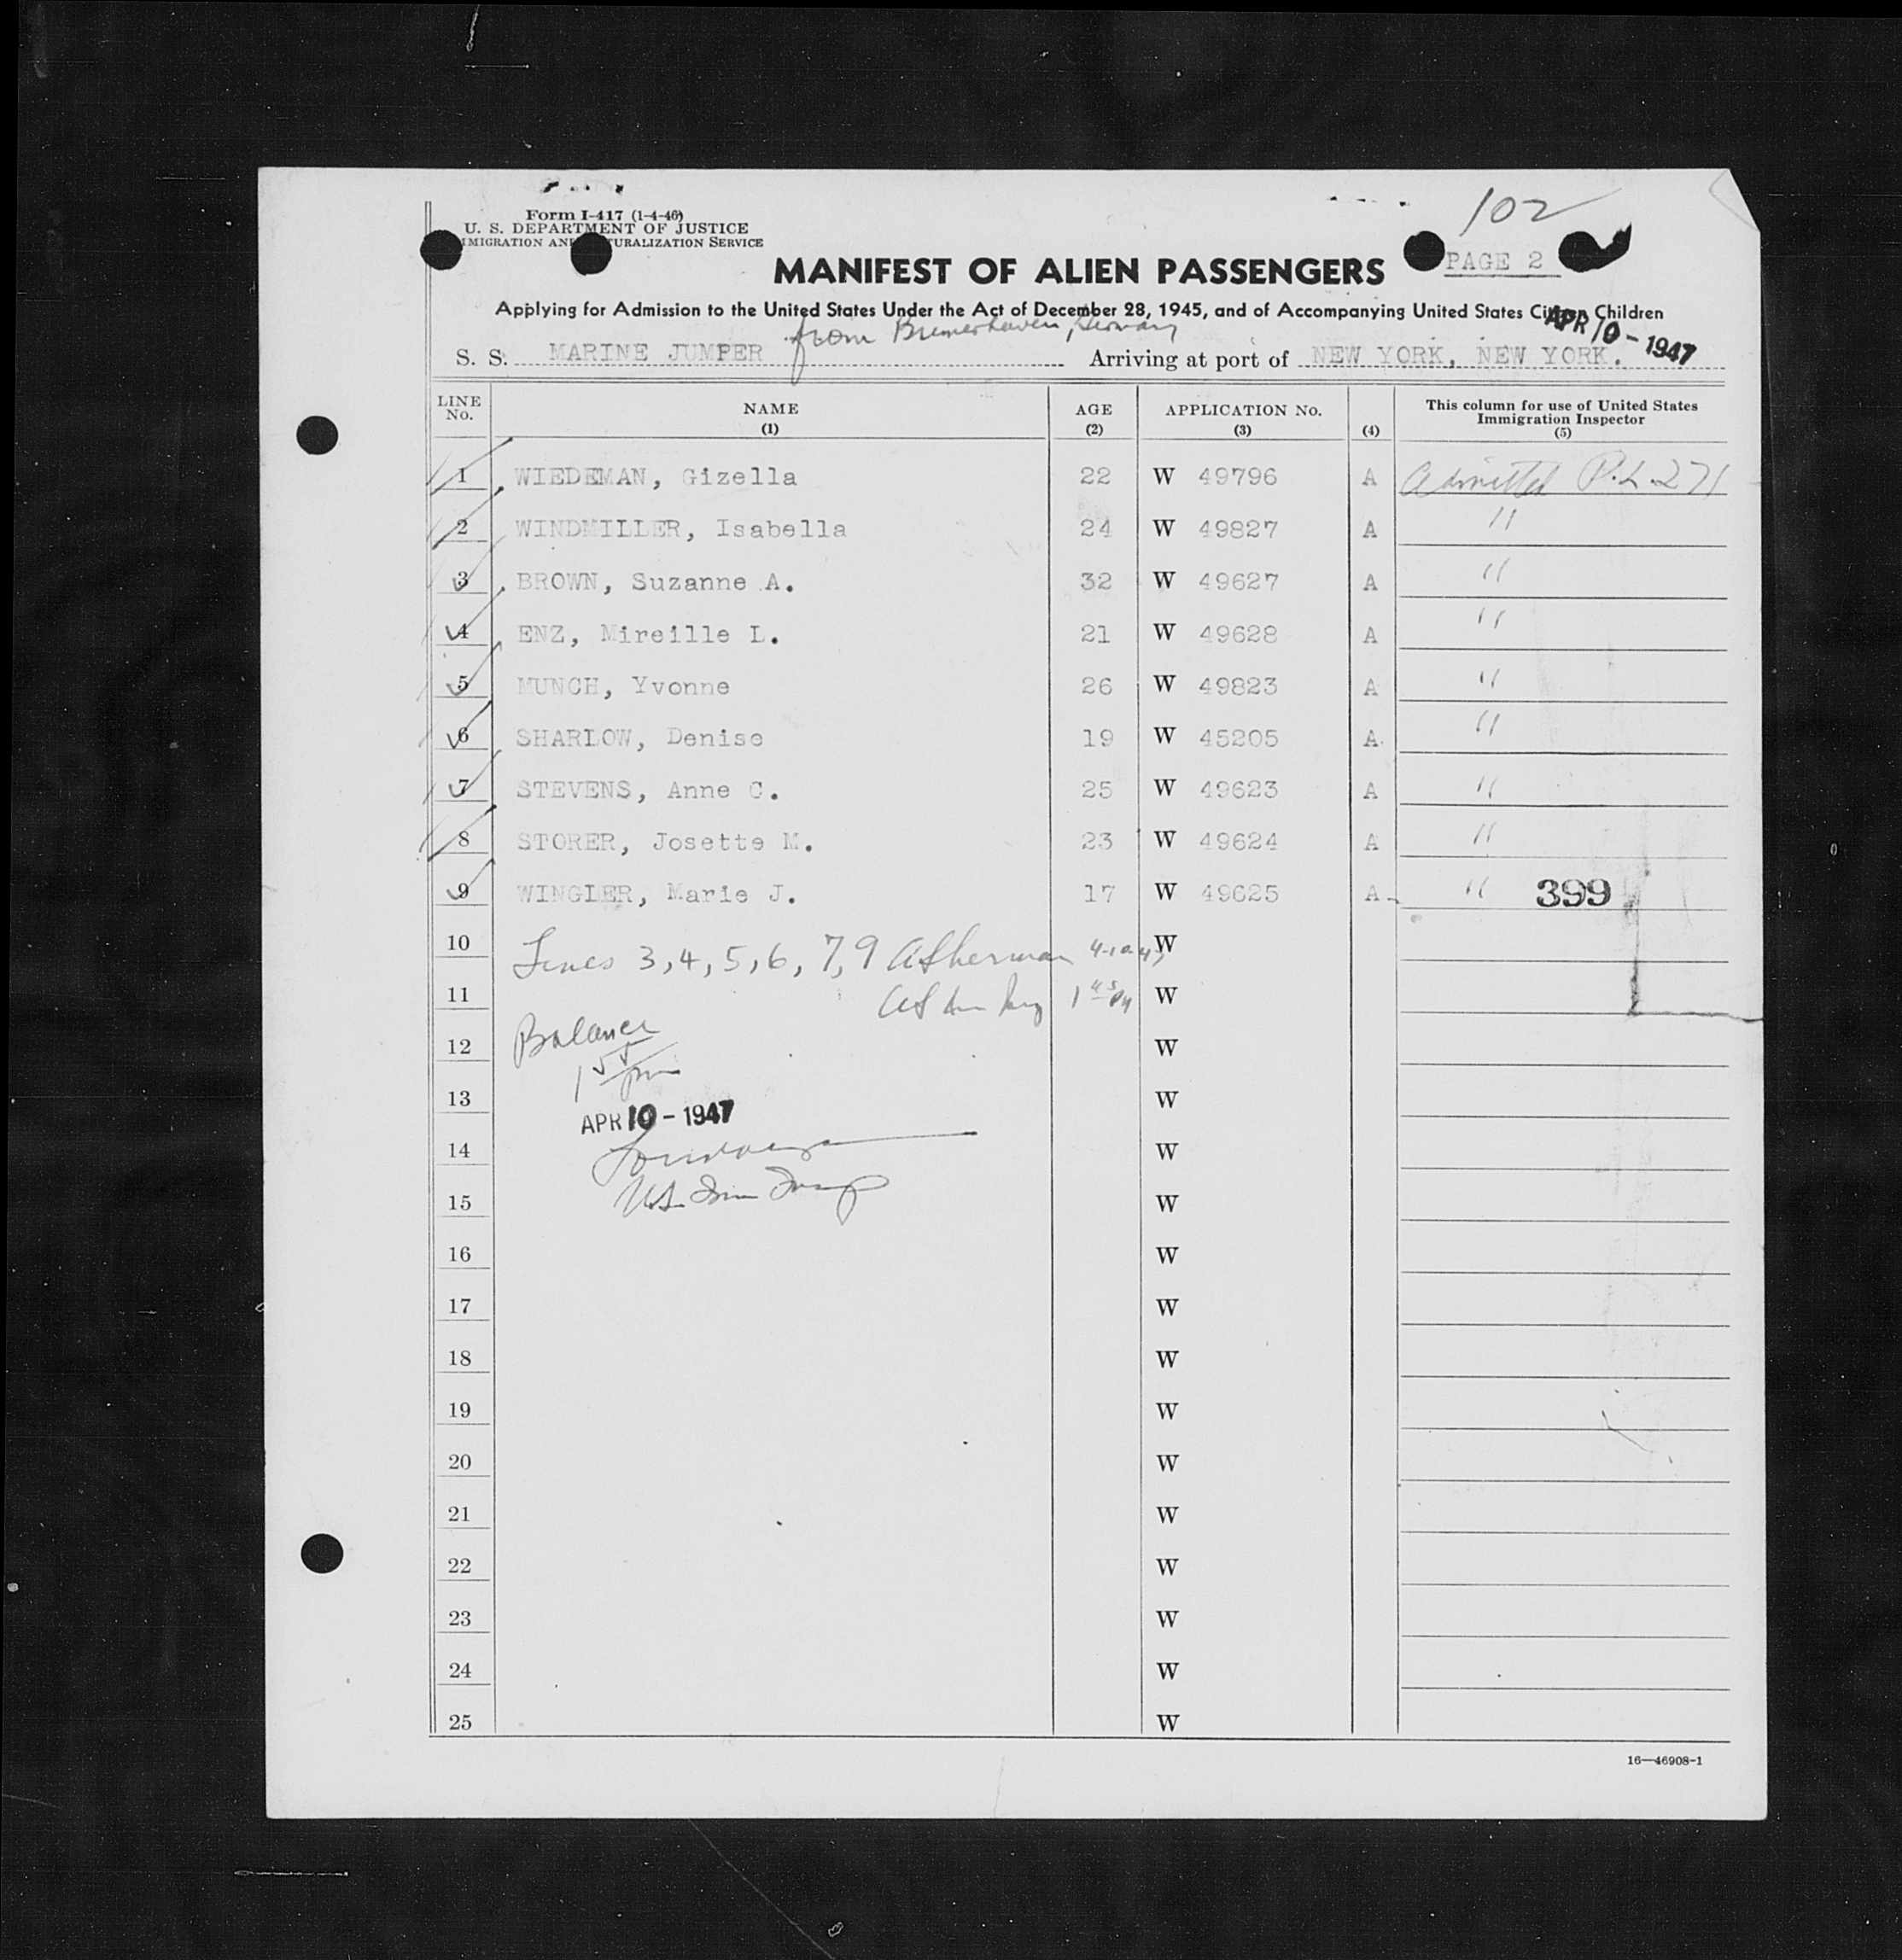 102
Form I-417 (1-4-46)
U. S. DEPARTMENT OF JUSTICE
IMIGRATION AN URALIZATION SERVICE
PAGE 2
MANIFEST OF ALIEN PASSENGERS
Applying for Admission to the United States Under the Act of December 28, 1945, and of Accompanying United States Citizen Children
APR 10 - 1947
from Bremerhaven, Germany
S. S. MARINE JUMPER Arriving at port of NEW YORK, NEW YORK.
LINE No. NAME (1) AGE (2) APPLICATION No. (3) (4) This column for use of United States Immigration Inspector (5)
1 WIEDEMAN, Gizella 22 W 49796 A Admitted P.L. 271
2 WINDMILLER, Isabella 24 W 49827 A "
3 BROWN, Suzanne A. 32 W 49627 A "
4 ENZ, Mireille L. 21 W 49628 A "
5 MUNCH, Yvonne 26 W 49823 A "
6 SHARLOW, Denise 19 W 45205 A "
7 STEVENS, Anne C. 25 W 49623 A "
8 STORER, Josette M. 23 W 49624 A "
9 WINGLER, Marie J. 17 W 49625 A " 399
10 Lines 3, 4, 5, 6, 7, 9 W
11 W
12 Balance W
13 W
APR 10 - 1947
14 W
15 W
16 W
17 W
18 W
19 W
20 W
21 W
22 W
23 W
24 W
25 W
16—46908-1